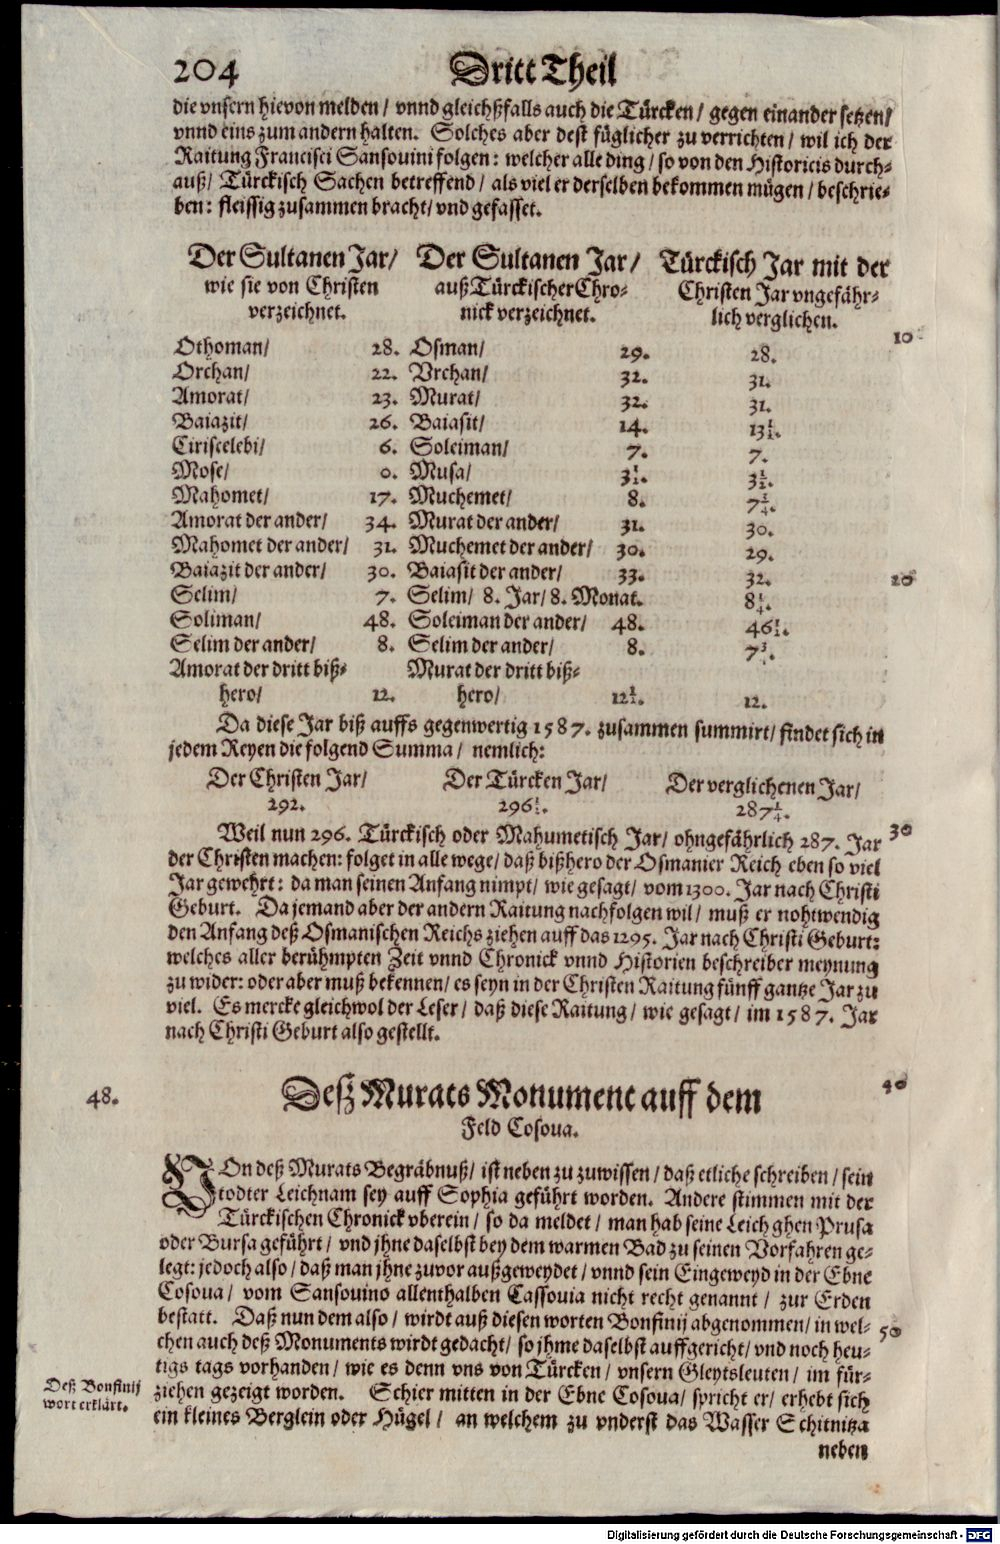 204 Dritt Theil
die vnsern hievon melden / vnnd gleichßfalls auch die Türcken / gegen einander setzen /
vnnd eins zum andern halten. Solches aber dest füglicher zu verrichten / wil ich der
Raitung Francisci Sansouini folgen: welcher alle ding / so von den Historicis durch-
auß / Türckisch Sachen betreffend / als viel er derselben bekommen mügen / beschrie-
ben: fleissig zusammen bracht / vnd gefasset.
Der Sultanen Jar / Der Sultanen Jar / Türckisch Jar mit der
wie sie von Christen auß Türckischer Chro- Christen Jar vngefähr-
verzeichnet. nick verzeichnet. lich verglichen.
10
Othoman / 28. Osman / 29. 28.
Orchan / 22. Vrchan / 32. 31.
Amorat / 23. Murat / 32. 31.
Baiazit / 26. Baiasit / 14. 13½.
Ciriscelebi / 6. Soleiman / 7. 7.
Mose / 0. Musa / 3½. 3½.
Mahomet / 17. Muchemet / 8. 7¾.
Amorat der ander / 34. Murat der ander / 31. 30.
Mahomet der ander / 31. Muchemet der ander / 30. 29.
Baiazit der ander / 30. Baiasit der ander / 33. 32. 20
Selim / 7. Selim / 8. Jar / 8. Monat. 8¼.
Soliman / 48. Soleiman der ander / 48. 46½.
Selim der ander / 8. Selim der ander / 8. 7¾.
Amorat der dritt biß- Murat der dritt biß-
hero / 12. hero / 12½. 12.
Da diese Jar biß auffs gegenwertig 1587. zusammen summirt / findet sich in
jedem Reyen die folgend Summa / nemlich:
Der Christen Jar / Der Türcken Jar / Der verglichenen Jar /
292. 296½. 287¼.
Weil nun 296. Türckisch oder Mahumetisch Jar / ohngefährlich 287. Jar 30
der Christen machen: folget in alle wege / daß bißhero der Osmanier Reich eben so viel
Jar gewehrt: da man seinen Anfang nimpt / wie gesagt / vom 1300. Jar nach Christi
Geburt. Da jemand aber der andern Raitung nachfolgen wil / muß er nohtwendig
den Anfang deß Osmanischen Reichs ziehen auff das 1295. Jar nach Christi Geburt:
welches aller berühmpten Zeit vnnd Chronick vnnd Historien beschreiber meynung
zu wider: oder aber muß bekennen / es seyn in der Christen Raitung fünff gantze Jar zu
viel. Es mercke gleichwol der Leser / daß diese Raitung / wie gesagt / im 1587. Jar
nach Christi Geburt also gestellt.
48. Deß Murats Monument auff dem 40
Feld Cosoua.
VOn deß Murats Begräbnuß / ist neben zu zuwissen / daß etliche schreiben / sein
todter Leichnam sey auff Sophia geführt worden. Andere stimmen mit der
Türckischen Chronick vberein / so da meldet / man hab seine Leich ghen Prusa
oder Bursa geführt / vnd jhne daselbst bey dem warmen Bad zu seinen Vorfahren ge-
legt: jedoch also / daß man jhne zuvor außgeweydet / vnnd sein Eingeweyd in der Ebne
Cosoua / vom Sansouino allenthalben Cassouia nicht recht genannt / zur Erden
bestatt. Daß nun dem also / wirdt auß diesen worten Bonfinij abgenommen / in wel- 50
chen auch deß Monuments wirdt gedacht / so jhme daselbst auffgericht / vnd noch heu-
tigs tags vorhanden / wie es denn vns von Türcken / vnsern Gleytsleuten / im für-
Deß Bonfinij wort erklärt.
ziehen gezeigt worden. Schier mitten in der Ebne Cosoua / spricht er / erhebt sich
ein kleines Berglein oder Hügel / an welchem zu vnderst das Wasser Schitnitza
neben
Digitalisierung gefördert durch die Deutsche Forschungsgemeinschaft - DFG